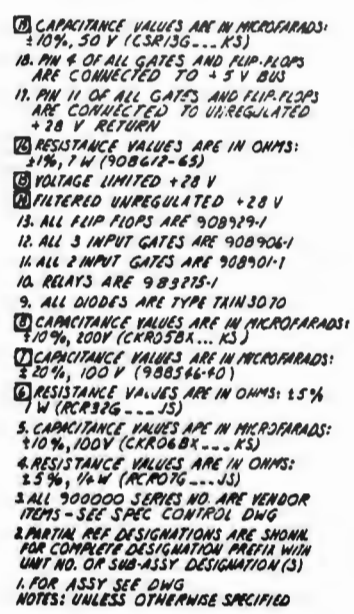 19 CAPACITANCE VALUES ARE IN MICROFARADS:
±10%, 50 V (CSR13G___KS)
18. PIN 4 OF ALL GATES AND FLIP-FLOPS
ARE CONNECTED TO +5 V BUS
17. PIN 11 OF ALL GATES AND FLIP-FLOPS
ARE CONNECTED TO UNREGULATED
+28 V RETURN
16 RESISTANCE VALUES ARE IN OHMS:
±1%, 7 W (908612-65)
15 VOLTAGE LIMITED +28 V
14 FILTERED UNREGULATED +28 V
13. ALL FLIP FLOPS ARE 908929-1
12. ALL 3 INPUT GATES ARE 908906-1
11. ALL 2 INPUT GATES ARE 908901-1
10. RELAYS ARE 983275-1
9. ALL DIODES ARE TYPE TA1N3070
8 CAPACITANCE VALUES ARE IN MICROFARADS:
±10%, 200V (CKR05BX... KS)
7 CAPACITANCE VALUES ARE IN MICROFARADS:
±20%, 100 V (988546-40)
6 RESISTANCE VALUES ARE IN OHMS: ±5%
1 W (RCR32G___JS)
5. CAPACITANCE VALUES ARE IN MICROFARADS:
±10%, 100V (CKR06BX___KS)
4. RESISTANCE VALUES ARE IN OHMS:
±5%, 1/4 W (RCR07G___JS)
3. ALL 900000 SERIES NO. ARE VENDOR
ITEMS - SEE SPEC CONTROL DWG
2. PARTIAL REF DESIGNATIONS ARE SHOWN.
FOR COMPLETE DESIGNATION PREFIX WITH
UNIT NO. OR SUB-ASSY DESIGNATION(S)
1. FOR ASSY SEE DWG
NOTES: UNLESS OTHERWISE SPECIFIED